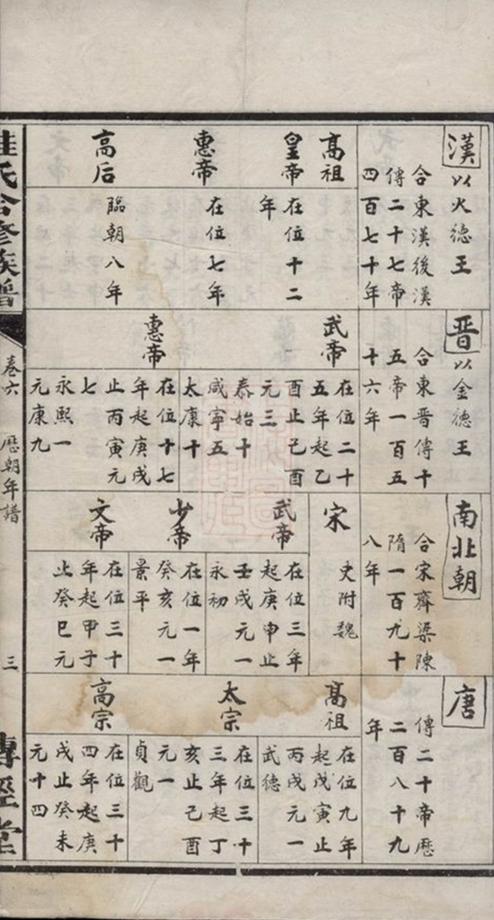 漢以火德王
合東漢後漢
傳二十七帝
四百七十年
高祖
皇帝
在位十二
年
惠帝
在位七年
高后
臨朝八年
晋以金德王
合東晋傳十
五帝一百五
十六年
武帝
在位二十
五年起乙
酉止己酉
元三
泰始十
咸寧五
太康十
惠帝
在位十七
年起庚戌
止丙寅元
七
永熙一
元康九
南北朝
合宋齊梁陳
隋一百九十
八年
宋
史附魏
武帝
在位三年
起庚申止
壬戌元一
永初
少帝
在位一年
癸亥元一
景平
文帝
在位三十
年起甲子
止癸巳元
唐
傳二十帝歷
二百八十九
年
高祖
在位九年
起戊寅止
丙戌元一
武德
太宗
在位三十
三年起丁
亥止己酉
元一
貞觀
高宗
在位三十
四年起庚
戌止癸未
元十四
氏合修族譜
卷六
歷朝年譜
三
傳經堂